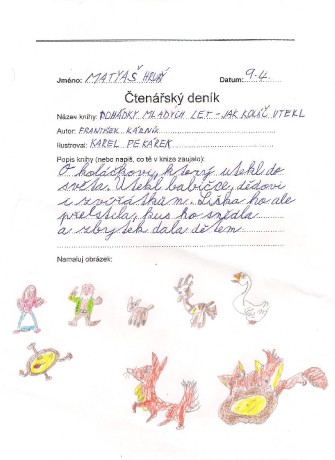 Jméno: MATYÁŠ HRUBÝ Datum: 9.4.
Čtenářský deník
Název knihy: POHÁDKY MLADÝCH LET - JAK KOLÁČ UTEKL
Autor: FRANTIŠEK KÁBNÍK
Ilustroval: KAREL PEKÁREK
Popis knihy (nebo napiš, co tě v knize zaujalo):
O koláčkovi, který utekl do
světa. Utekl babičce, dědovi
i zvířátkům. Liška ho ale
přelstila, kus ho snědla
a zbytek dala dětem.
Namaluj obrázek: